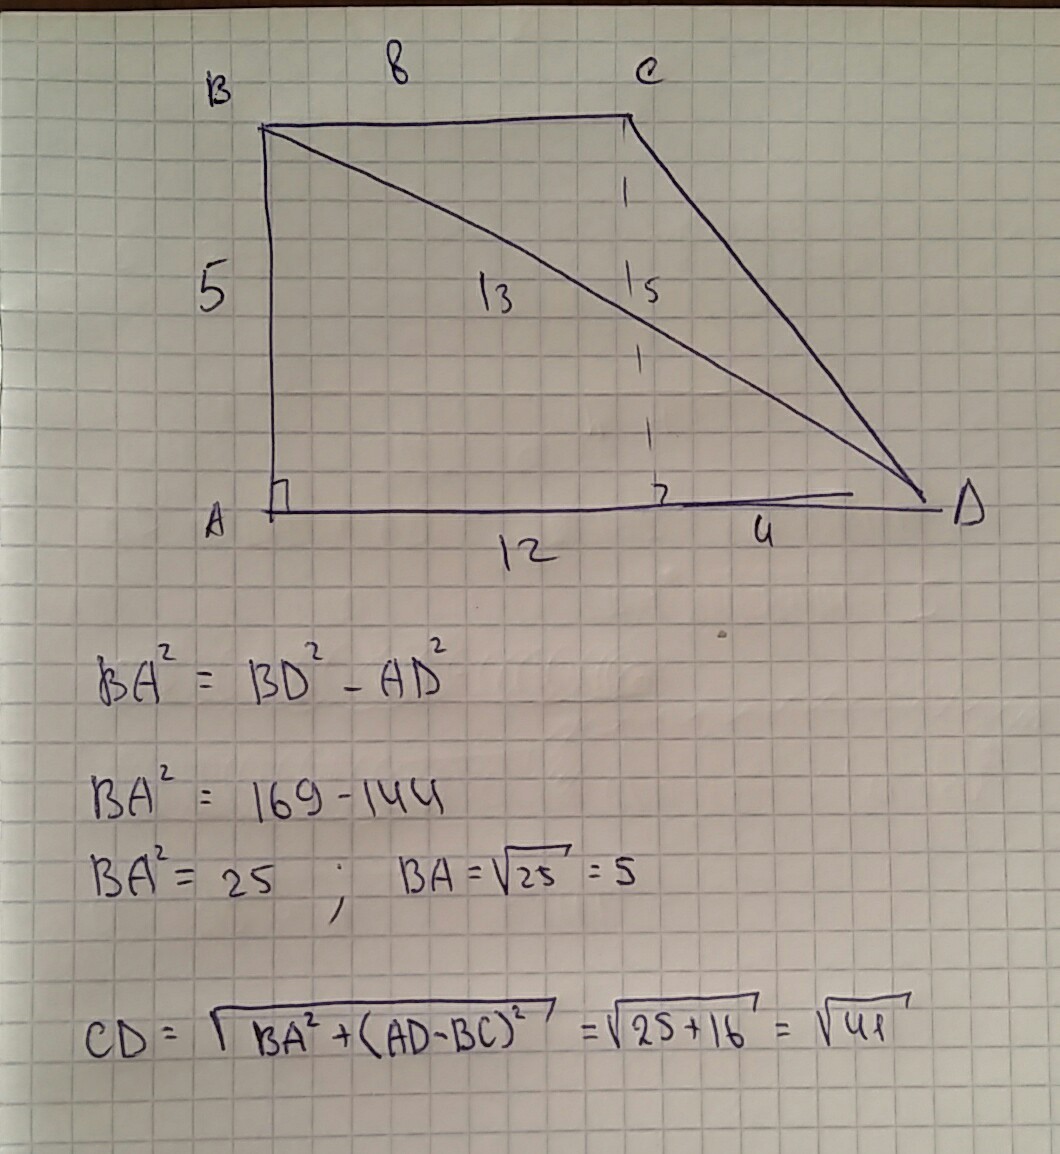 B 8 C
5 13 5
A 12 4 D
BA² = BD² - AD²
BA² = 169 - 144
BA² = 25 ; BA = √25 = 5
CD = √BA² + (AD - BC)² = √25 + 16 = √41